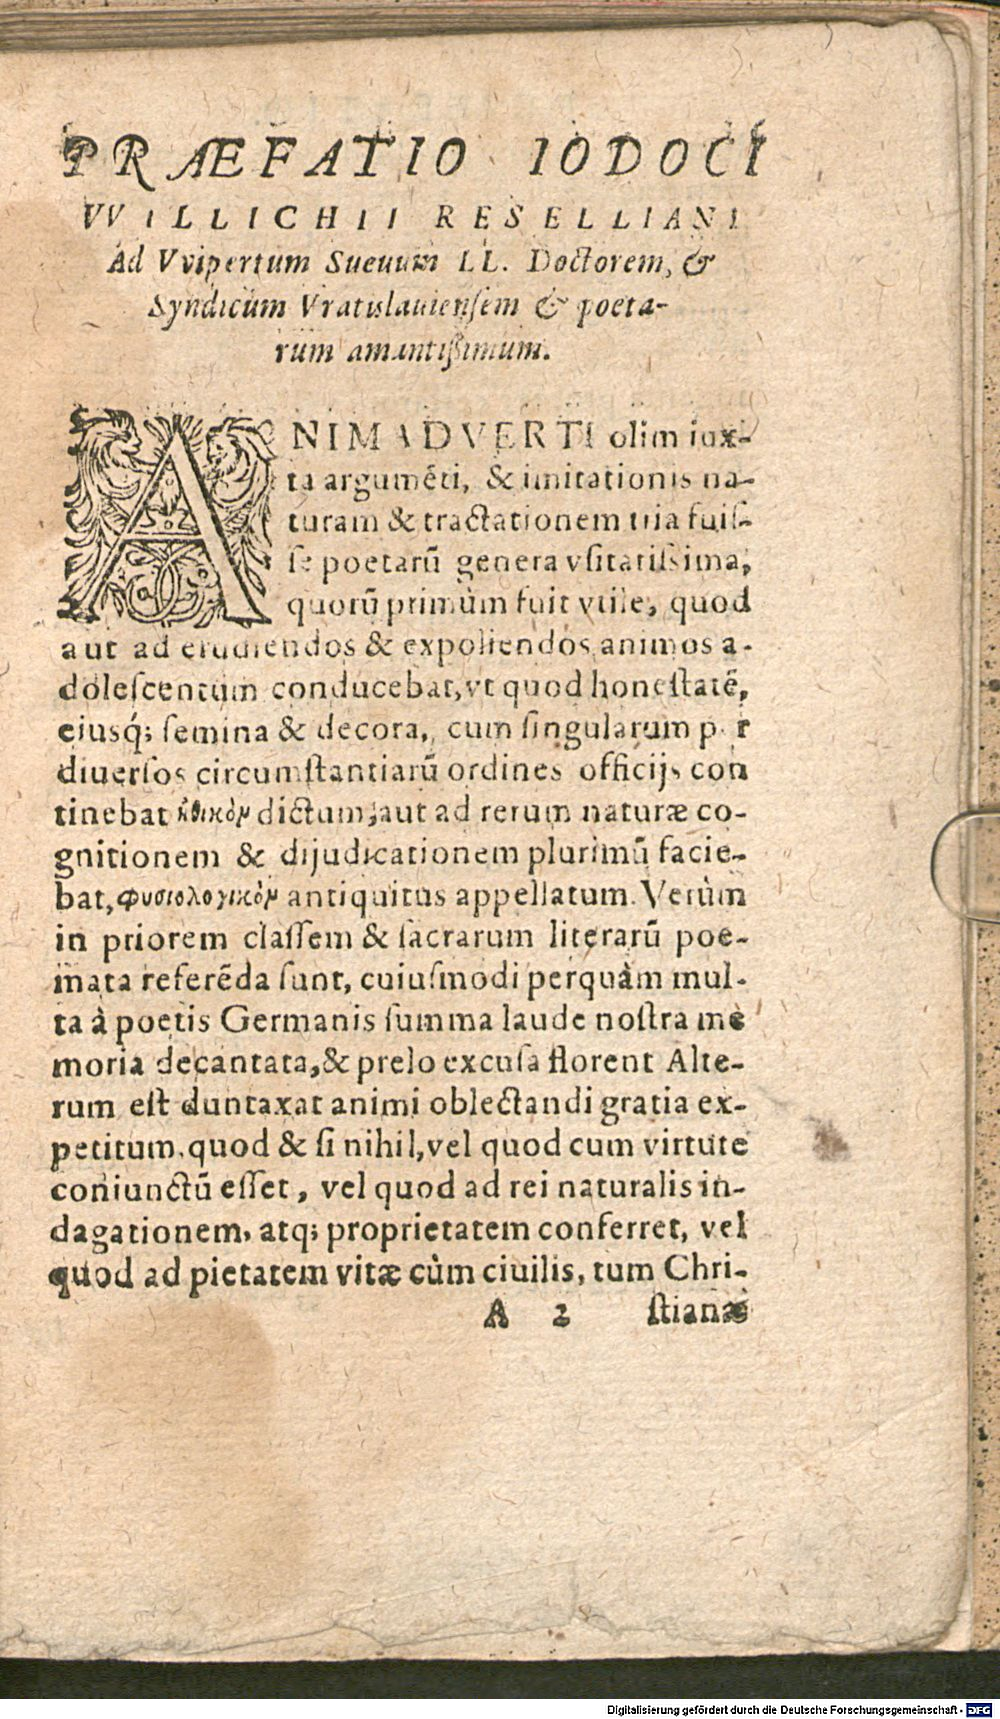 PRÆFATIO IODOCI
VVILLICHII RESELLIANI
Ad Vvipertum Sueuum LL. Doctorem, &
Syndicum Vratislauiensem & poeta-
rum amantißimum.
ANIMADVERTI olim iux-
ta argumẽti, & imitationis na-
turam & tractationem tria fuiſ-
ſe poetarũ genera vſitatiſsima,
quorũ primùm fuit vtile, quod
aut ad erudiendos & expoliendos animos a-
doleſcentum conducebat, vt quod honeſtatẽ,
eiusq́; ſemina & decora, cum ſingularum per
diuerſos circumſtantiarũ ordines officijs con
tinebat ἠθικὸν dictum, aut ad rerum naturæ co-
gnitionem & dijudicationem plurimũ facie-
bat, φυσιολογικὸν antiquitus appellatum. Verùm
in priorem claſſem & ſacrarum literarũ poe-
mata referẽda ſunt, cuiuſmodi perquàm mul-
ta à poetis Germanis ſumma laude noſtra me
moria decantata, & prelo excuſa florent Alte-
rum eſt duntaxat animi oblectandi gratia ex-
petitum, quod & ſi nihil, vel quod cum virtute
coniunctũ eſſet, vel quod ad rei naturalis in-
dagationem, atq; proprietatem conferret, vel
quod ad pietatem vitæ cùm ciuilis, tum Chri-
A 2 ſtianæ
Digitalisierung gefördert durch die Deutsche Forschungsgemeinschaft - DFG